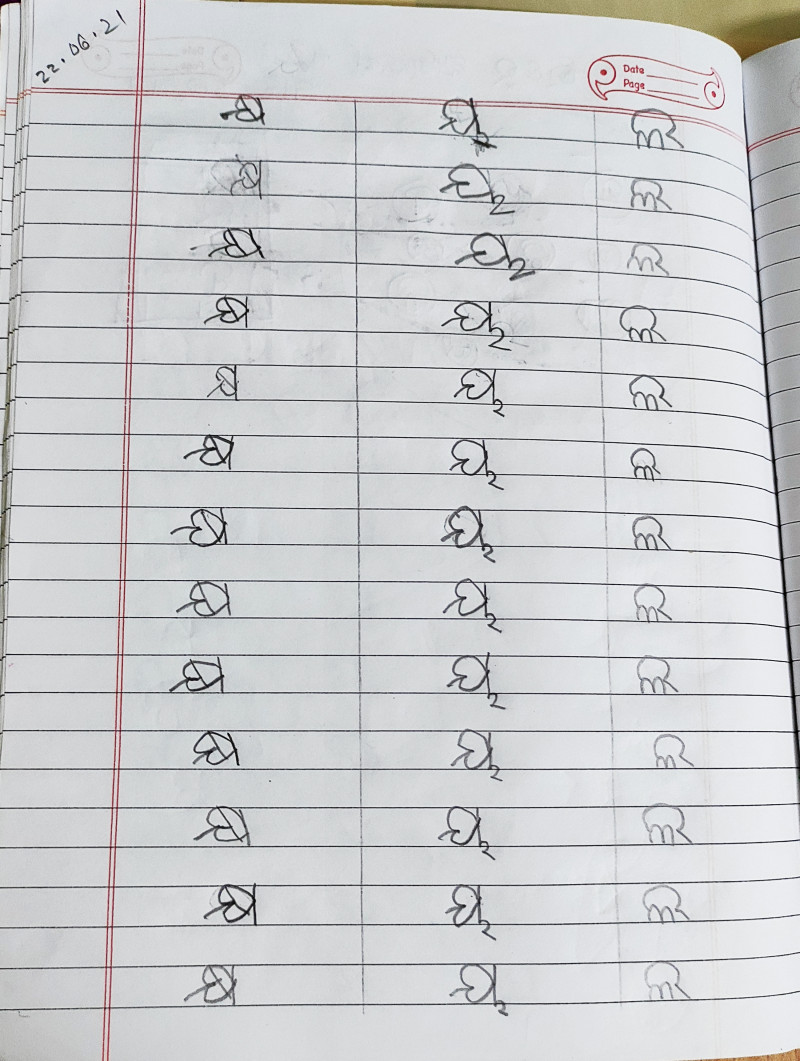 22.06.21
Date
Page
କ୍ଷ ୟ ଲ
କ୍ଷ ୟ ଲ
କ୍ଷ ୟ ଲ
କ୍ଷ ୟ ଲ
କ୍ଷ ୟ ଲ
କ୍ଷ ୟ ଲ
କ୍ଷ ୟ ଲ
କ୍ଷ ୟ ଲ
କ୍ଷ ୟ ଲ
କ୍ଷ ୟ ଲ
କ୍ଷ ୟ ଲ
କ୍ଷ ୟ ଲ
କ୍ଷ ୟ ଲ